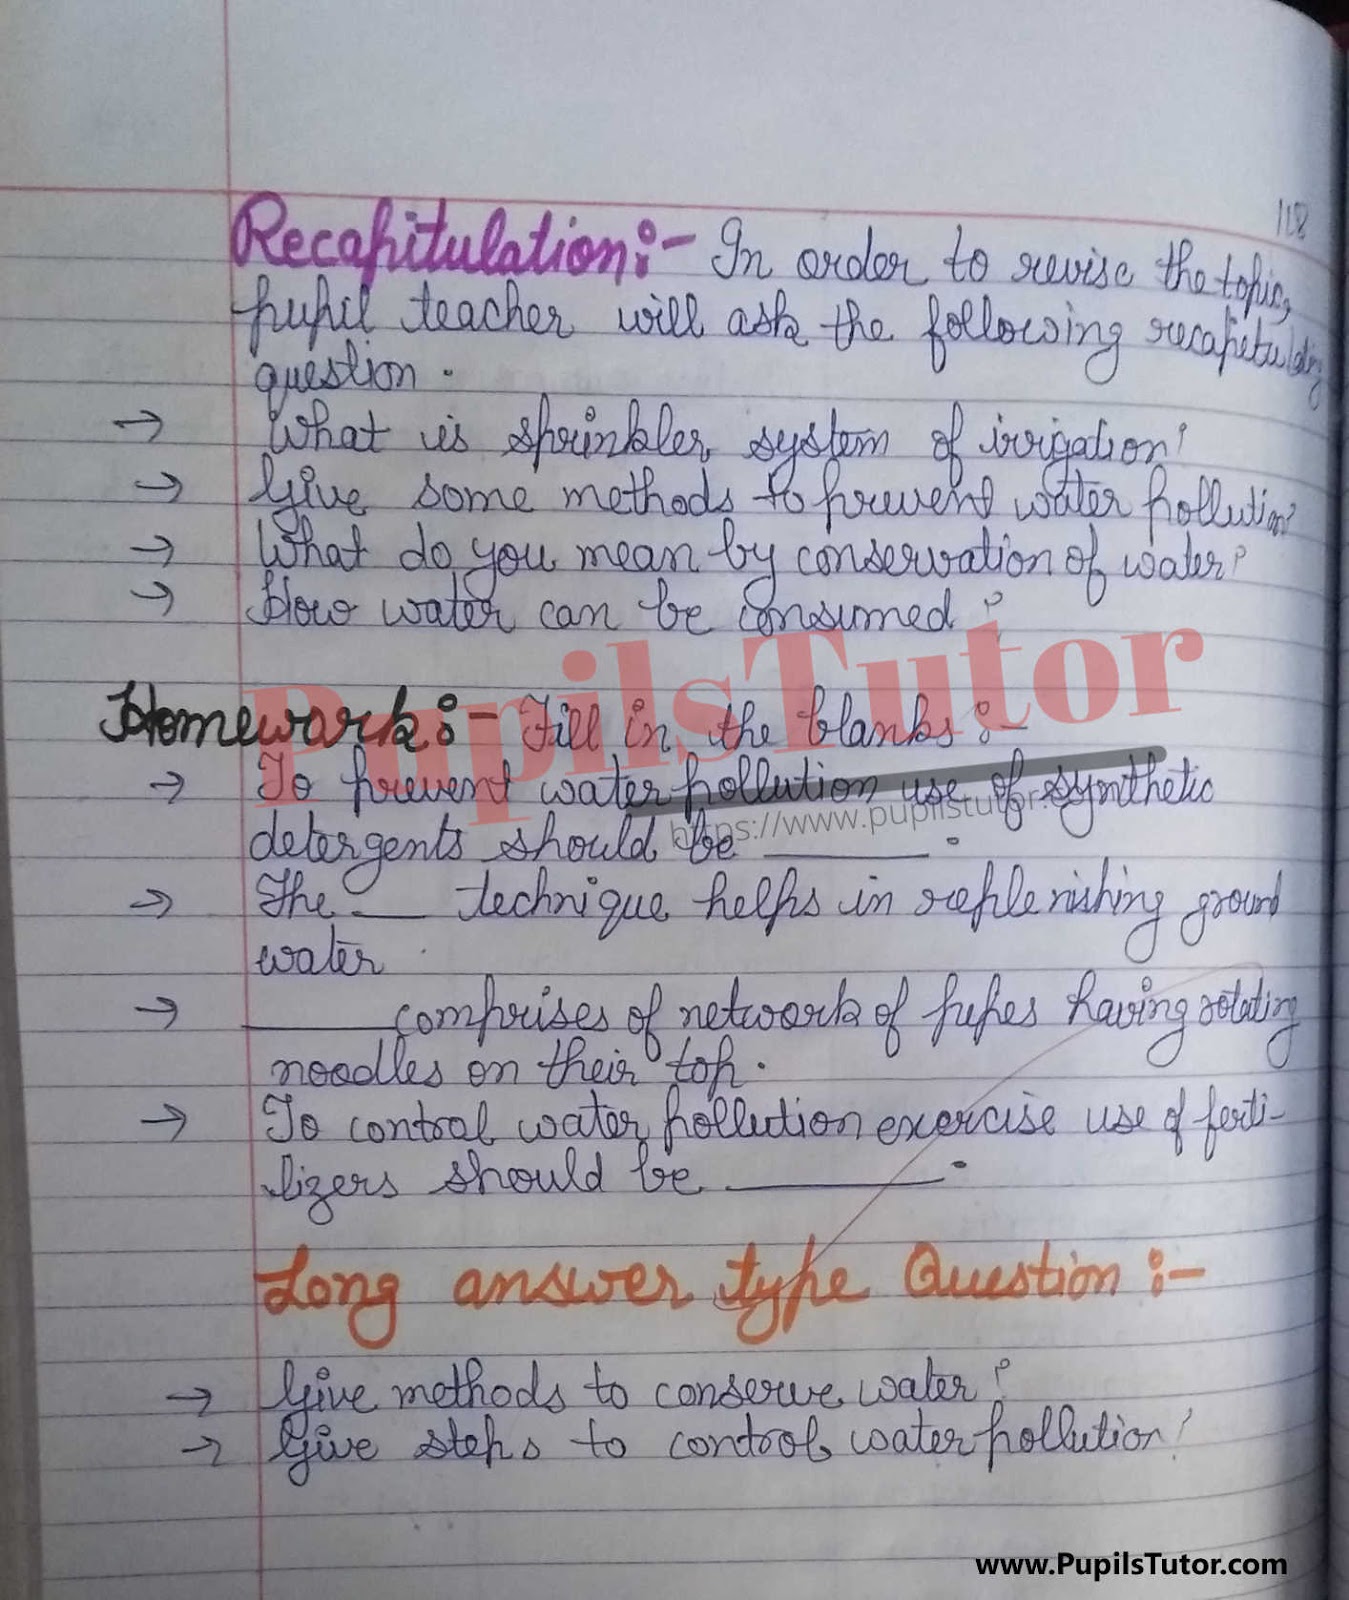 118
Recapitulation:- In order to revise the topic,
pupil teacher will ask the following recapitulating
question.
→ What is sprinkler system of irrigation?
→ Give some methods to prevent water pollution?
→ What do you mean by conservation of water?
→ How water can be consumed?
PupilsTutor
Homework:- Fill in the blanks:-
→ To prevent water pollution use of synthetic
https://www.pupilstutor.
detergents should be ______.
→ The ___ technique helps in replenishing ground
water.
→ ______ comprises of network of pipes having rotating
noodles on their top.
→ To control water pollution exercise use of ferti-
lizers should be ______.
Long answer type Question:-
→ Give methods to conserve water?
→ Give steps to control water pollution?
www.PupilsTutor.com